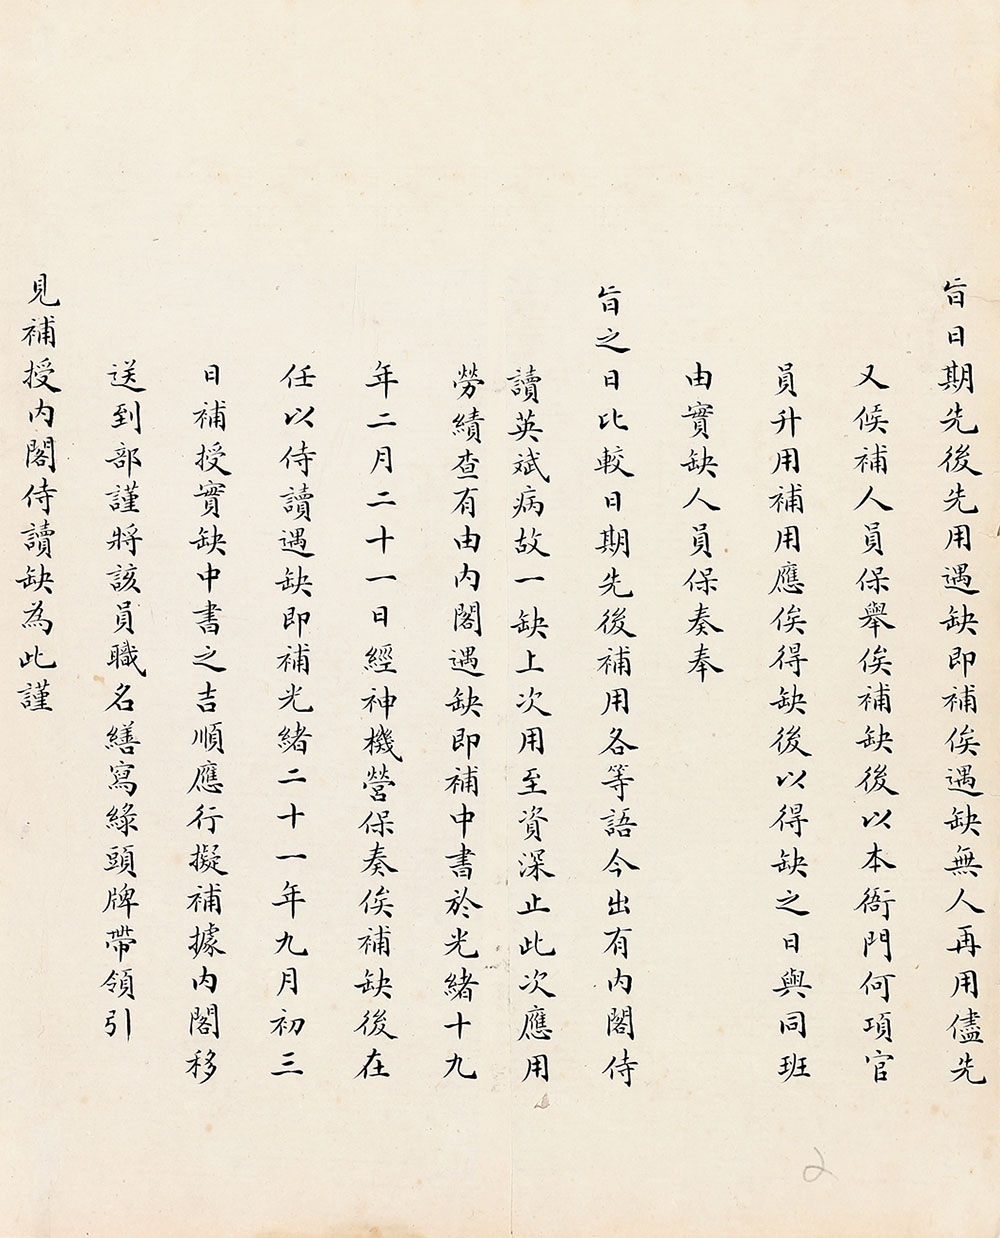 旨日期先後先用遇缺即補俟遇缺無人再用儘先
又候補人員保舉俟補缺後以本衙門何項官
員升用補用應俟得缺後以得缺之日與同班
由實缺人員保奏奉
旨之日比較日期先後補用各等語今出有內閣侍
讀英斌病故一缺上次用至資深止此次應用
勞績查有由內閣遇缺即補中書於光緒十九
年二月二十一日經神機營保奏俟補缺後在
任以侍讀遇缺即補光緒二十一年九月初三
日補授實缺中書之吉順應行擬補據內閣移
送到部謹將該員職名繕寫綠頭牌帶領引
見補授內閣侍讀缺為此謹
2